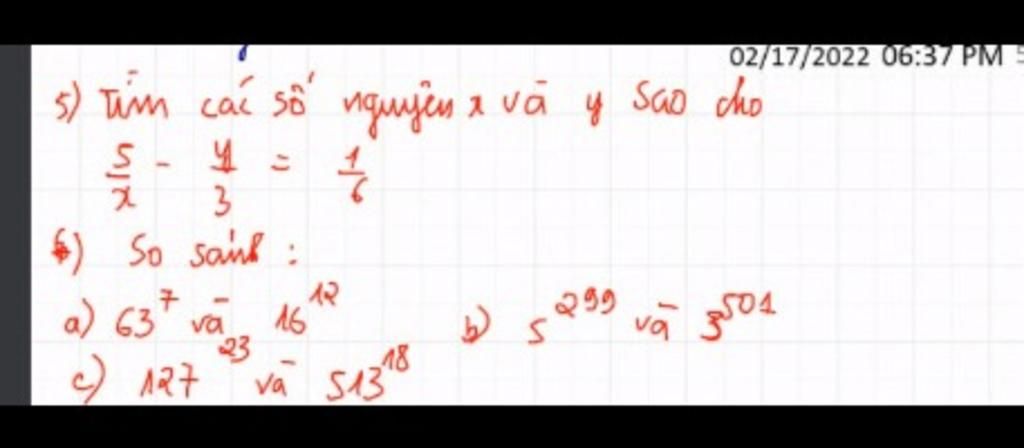 02/17/2022 06:37 PM 5
5) Tìm các số nguyên x và y sao cho
5/x - y/3 = 1/6
6) So sánh :
a) 63^7 và 16^12 b) 5^299 và 3^501
c) 127^23 và 513^18